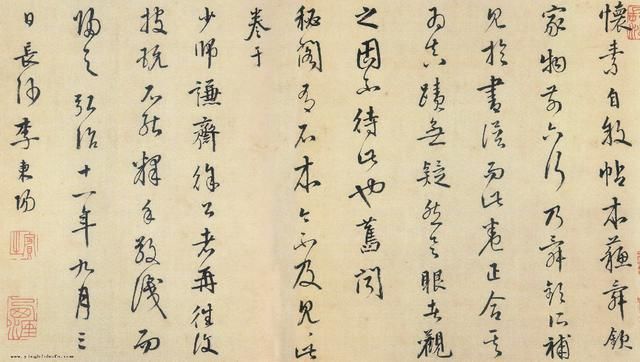 懷素自敘帖本蘇舜欽
家物前六行乃舜欽所補
見於書譜而此卷正合其
為真蹟無疑然具眼者觀
之固不待此也舊聞
秘閣有石本今不及見此
卷于
少師謙齋徐公者再往復
披玩不能釋手敬識而
歸之弘治十一年九月三
日長沙李東陽
賓之
www.yingbishufa.com